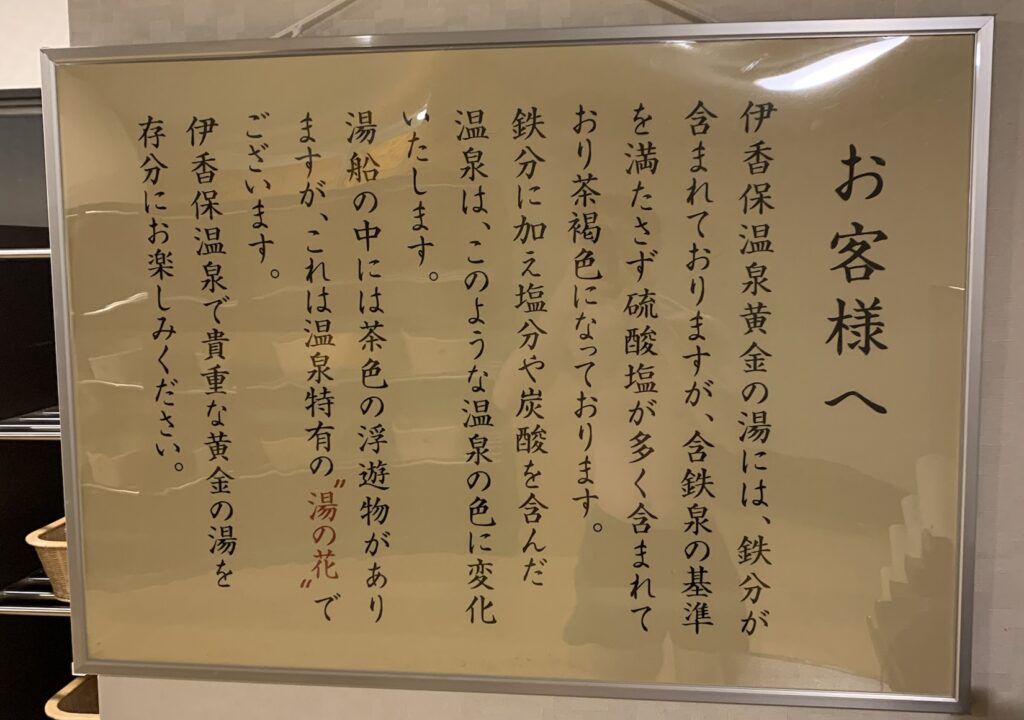 お客様へ
伊香保温泉黄金の湯には、鉄分が
含まれておりますが、含鉄泉の基準
を満たさず硫酸塩が多く含まれて
おり茶褐色になっております。
鉄分に加え塩分や炭酸を含んだ
温泉は、このような温泉の色に変化
いたします。
湯船の中には茶色の浮遊物があり
ますが、これは温泉特有の〝湯の花〟で
ございます。
伊香保温泉で貴重な黄金の湯を
存分にお楽しみください。